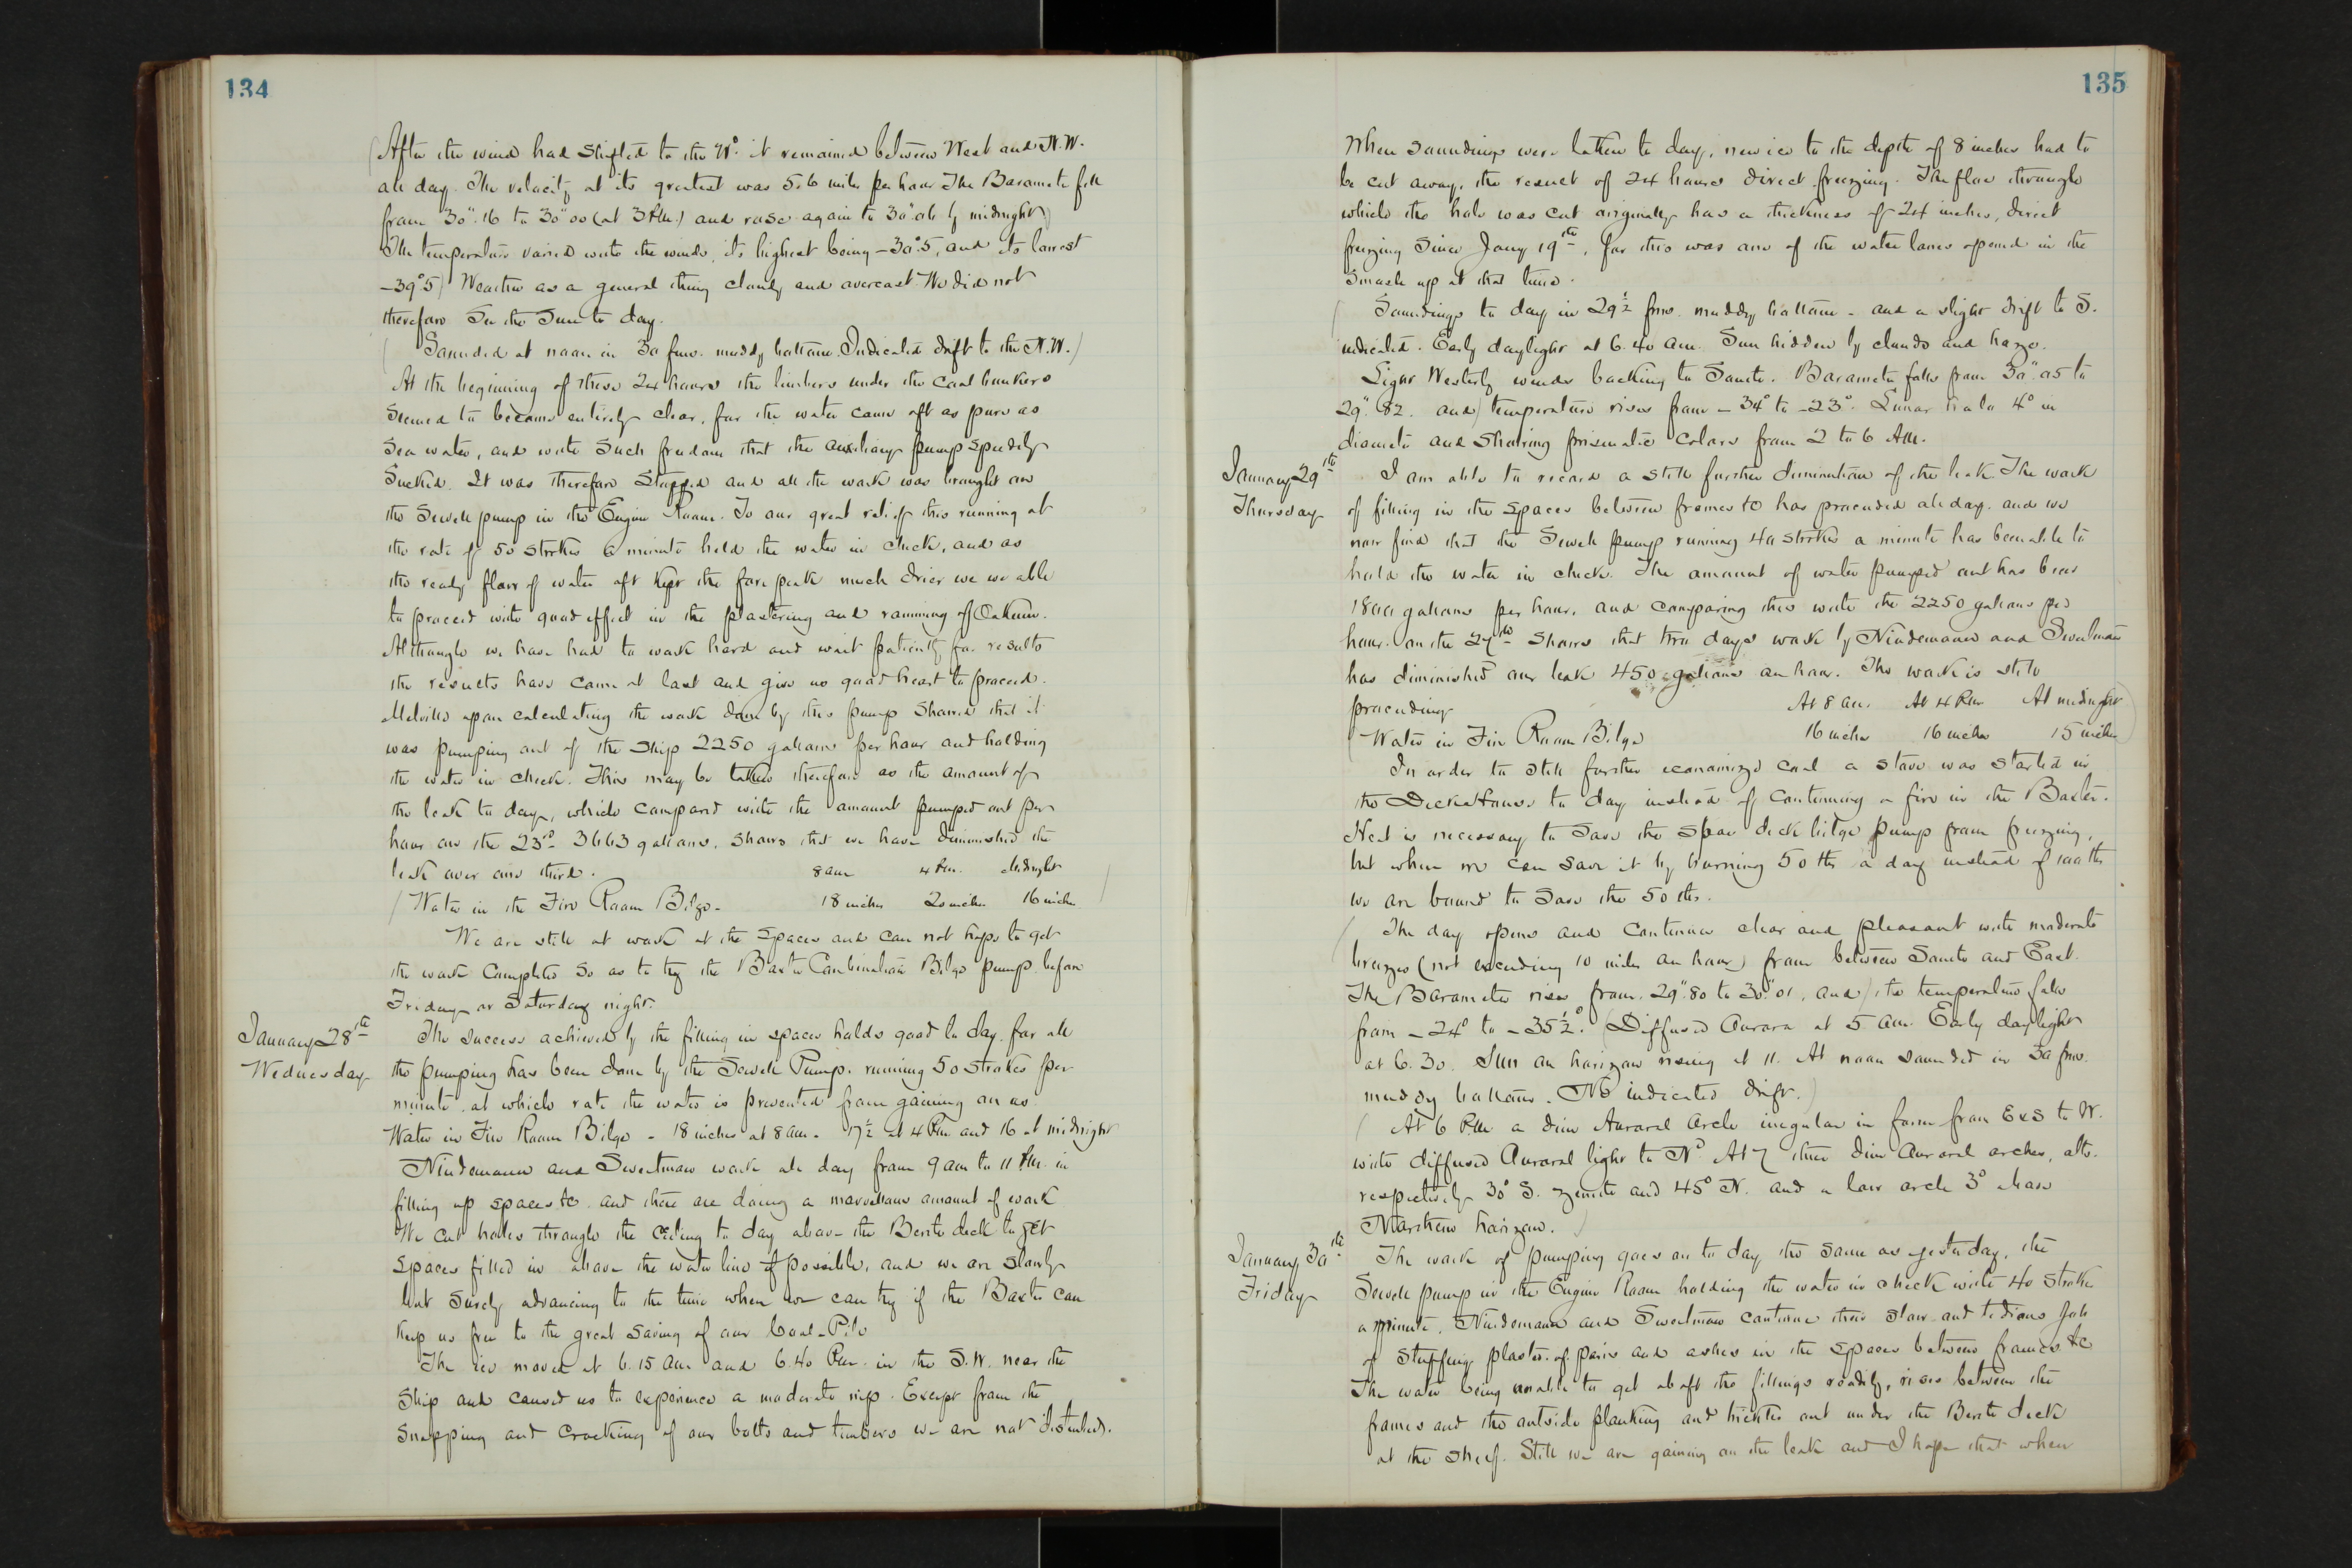 134
(After the wind had shifted to the Nᵒ. it remained between West and N.W.
all day. The velocity at its greatest was 5.6 miles per hour The Barometer fell
from 30".16 to 30".00 (at 3 P.M.) and rose again to 30".06 by midnight)
The temperature varied with the winds, its highest being -30°.5, and its lowest
-39°.5) Weather as a general thing cloudy and overcast. We did not
therefore See the Sun to day.
(Sounded at noon in 30 fms. muddy bottom. Indicated drift to the N.W.)
At the beginning of these 24 hours the limbers under the coal bunkers
seemed to become entirely clear, for the water came aft as pure as
sea water, and with such freedom that the auxiliary pump speedily
sucked. It was therefore stopped and all the work was brought on
the Sewell pump in the Engine Room. To our great relief this running at
the rate of 50 strokes a minute held the water in check, and as
the ready flow of water aft kept the fore peak much drier we we able
to proceed with good effect in the plastering and ramming of Oakum.
Although we have had to work hard and wait patiently for results
the results have come at last and give us good heart to proceed.
Melville upon calculating the work done by this pump showed that it
was pumping out of the ship 2250 gallons per hour and holding
the water in check. This may be taken therefore as the amount of
the leak to day, which compared with the amount pumped out per
hour on the 23rd 3663 gallons, shows that we have diminished the
leak over one third. 8 am 4 P.M. Midnight
(Water in the Fire Room Bilge - 18 inches 20 inches 16 inches )
We are still at work at the spaces and can not hope to get
the work completed so as to try the Baxter Combination Bilge pump before
Friday or Saturday night.
January 28th
Wednesday
The success achieved by the filling in spaces holds good to day, for all
the pumping has been done by the Sewell Pump, running 50 strokes per
minute at which rate the water is prevented from gaining on us
Water in Fire Room Bilge - 18 inches at 8 am - 17½ at 4 P.M and 16 at midnight
Nindemann and Sweetman work all day from 9 am to 11 P.M. in
filling up spaces &c. and there are doing a marvellous amount of work
We cut holes through the ceiling to day above the Berth deck to get
spaces filled in above the water line if possible, and we are slowly
but surely advancing to the time when we can try if the Baxter can
keep us free to the great saving of our Coal-Pile
The ice moved at 6.15 am and 6.40 P.M. in the S.W. near the
ship and caused us to experience a moderate nip. Except from the
snapping and cracking of our bolts and timbers we are not disturbed.
135
When soundings were taken to day, new ice to the depth of 8 inches had to
be cut away, the result of 24 hours direct freezing. The floe through
which the hole was cut originally has a thickness of 24 inches, direct
freezing since Jany 19th, for this was one of the water lanes opened in the
smash up at that time.
(Soundings to day in 29½ fms. muddy bottom - and a slight drift to S.
indicated. Early daylight at 6.40 am. Sun hidden by clouds and haze.
Light Westerly winds backing to South. Barometer falls from 30".05 to
29".82. and) temperature rises from -34° to -23°. Lunar halo 4° in
diameter and showing prismatic colors from 2 to 6 A.M.
January 29th
Thursday
I am able to record a still further diminution of the leak. The work
of filling in the spaces between frames &c has proceeded all day. and we
now find that the Sewell pump running 40 strokes a minute has been able to
hold the water in check. The amount of water pumped out has been
1800 gallons per hour, and comparing this with the 2250 gallons per
hour on the 27th shows that two days work by Nindemann and Sweetman
has diminished our leak 450 gallons an hour. The work is still
proceeding At 8 am. At 4 P.M At midnight
(Water in Fire Room Bilge 16 inches 16 inches 15 inches)
In order to still further economize coal a stove was started in
the Deckhouse to day instead of continuing a fire in the Baxter.
Heat is necessary to save the spar deck bilge pump from freezing,
but when we can save it by burning 50 lbs a day instead of 100 lbs
we are bound to save the 50 lbs.
(The day opens and continues clear and pleasant with moderate
breezes (not exceeding 10 miles an hour) from between South and East.
The Barometer rises from 29".80 to 30".01, and) the temperature falls
from -24° to -35½°. (Diffused Aurora at 5 am. Early daylight
at 6.30. Sun on horizon rising at 11. At noon sounded in 30 fms.
muddy bottom. No indicated drift.)
(At 6 P.M a dim Auroral Arch irregular in form from ExS to W.
with diffused Auroral light to Nᵒ. At 7 three dim Auroral arches, alts.
respectively 30° S. zenith and 45° N. and a low arch 3° above
Northern horizon.)
January 30th
Friday
The work of pumping goes on to day the same as yesterday, the
Sewell pump in the Engine Room holding the water in check with 40 strokes
a minute. Nindemann and Sweetman continue their slow and tedious job
of stuffing plaster of paris and ashes in the spaces between frames &c
The water being unable to get abaft the fillings readily, rises between the
frames and the outside planking and trickles out under the Berth deck
at the shelf. Still we are gaining on the leak and I hope that when